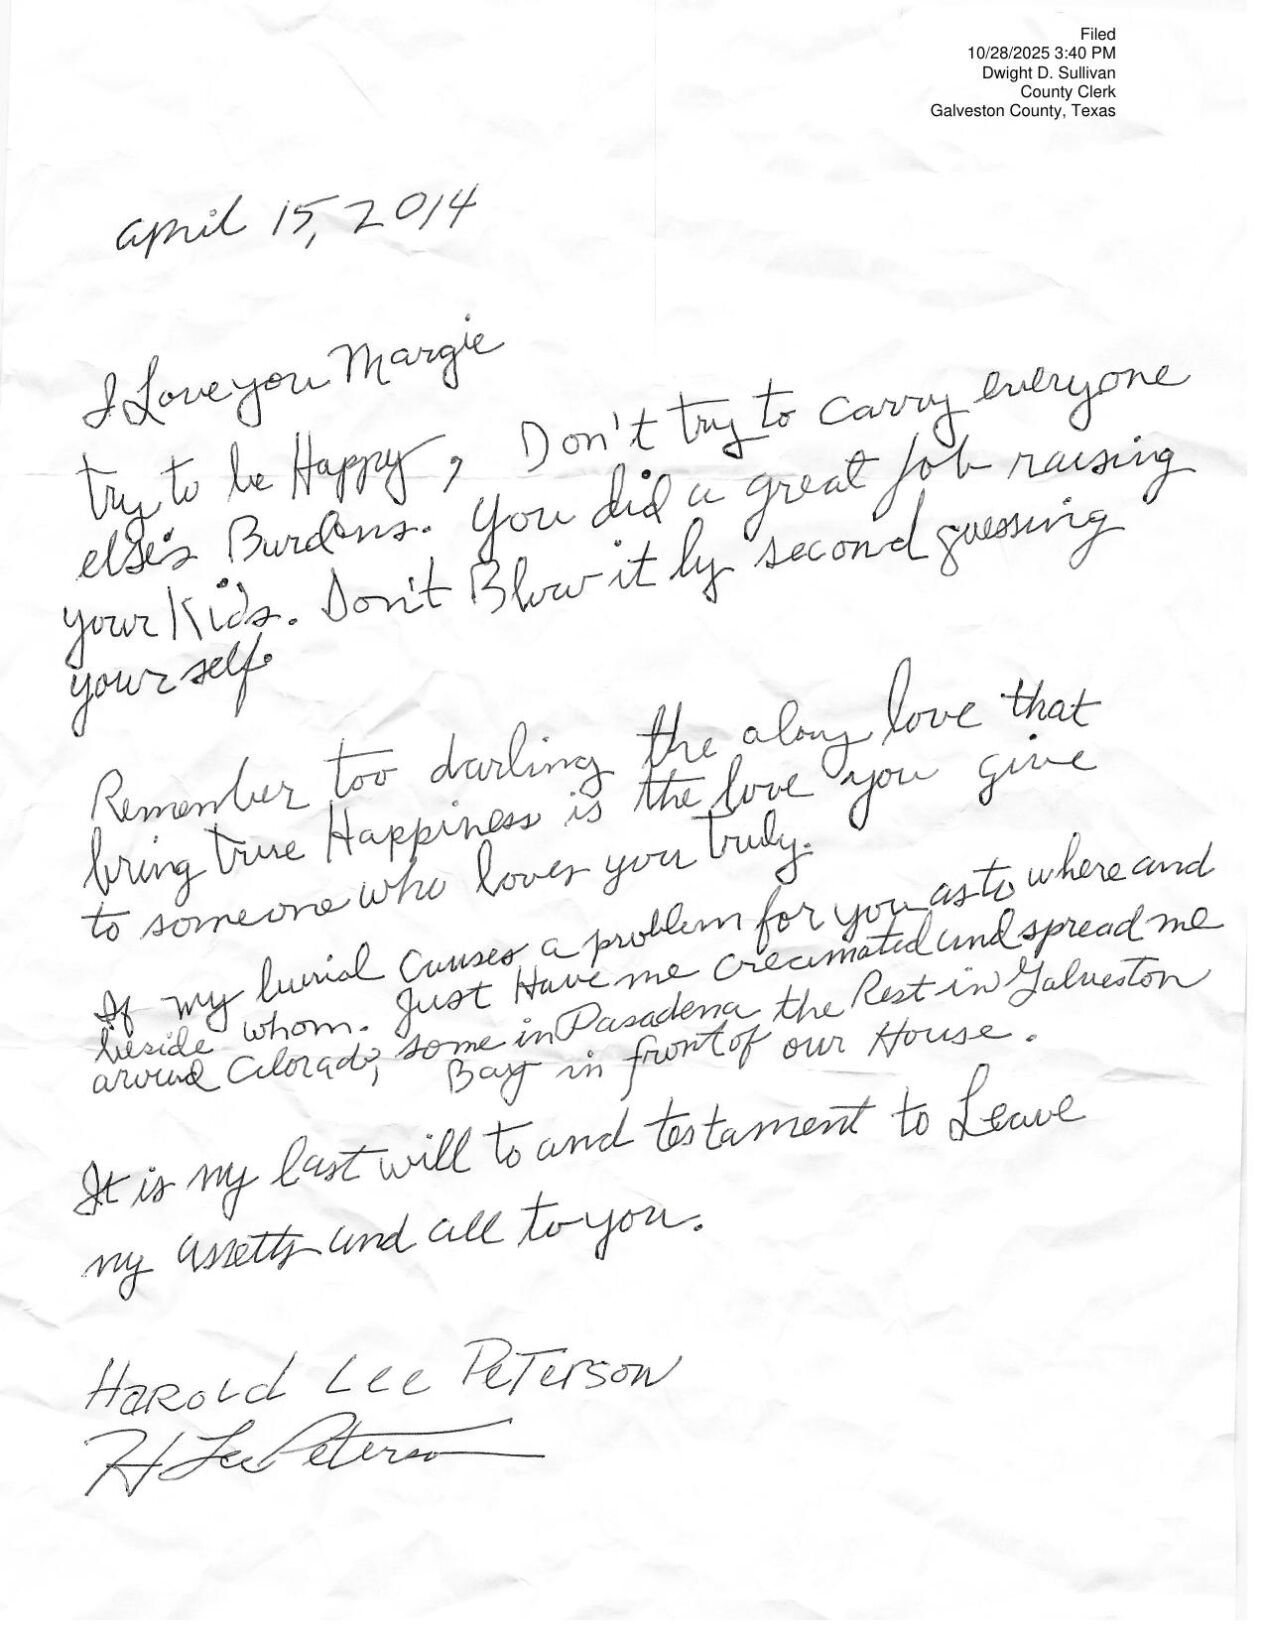 Filed
10/28/2025 3:40 PM
Dwight D. Sullivan
County Clerk
Galveston County, Texas
April 15, 2014
I Love you Margie
try to be Happy, Don't try to carry everyone
else's Burdens. You did a great job raising
your Kids. Don't Blow it by second guessing
yourself.
Remember too darling the along love that
bring true Happiness is the love you give
to someone who loves you truly.
If my burial causes a problem for you as to where and
beside whom. Just Have me creamated and spread me
around Colorado, some in Pasadena the Rest in Galveston
Bay in front of our House.
It is my last will to and testament to Leave
my assetts and all to you.
Harold Lee Peterson
H Lee Peterson